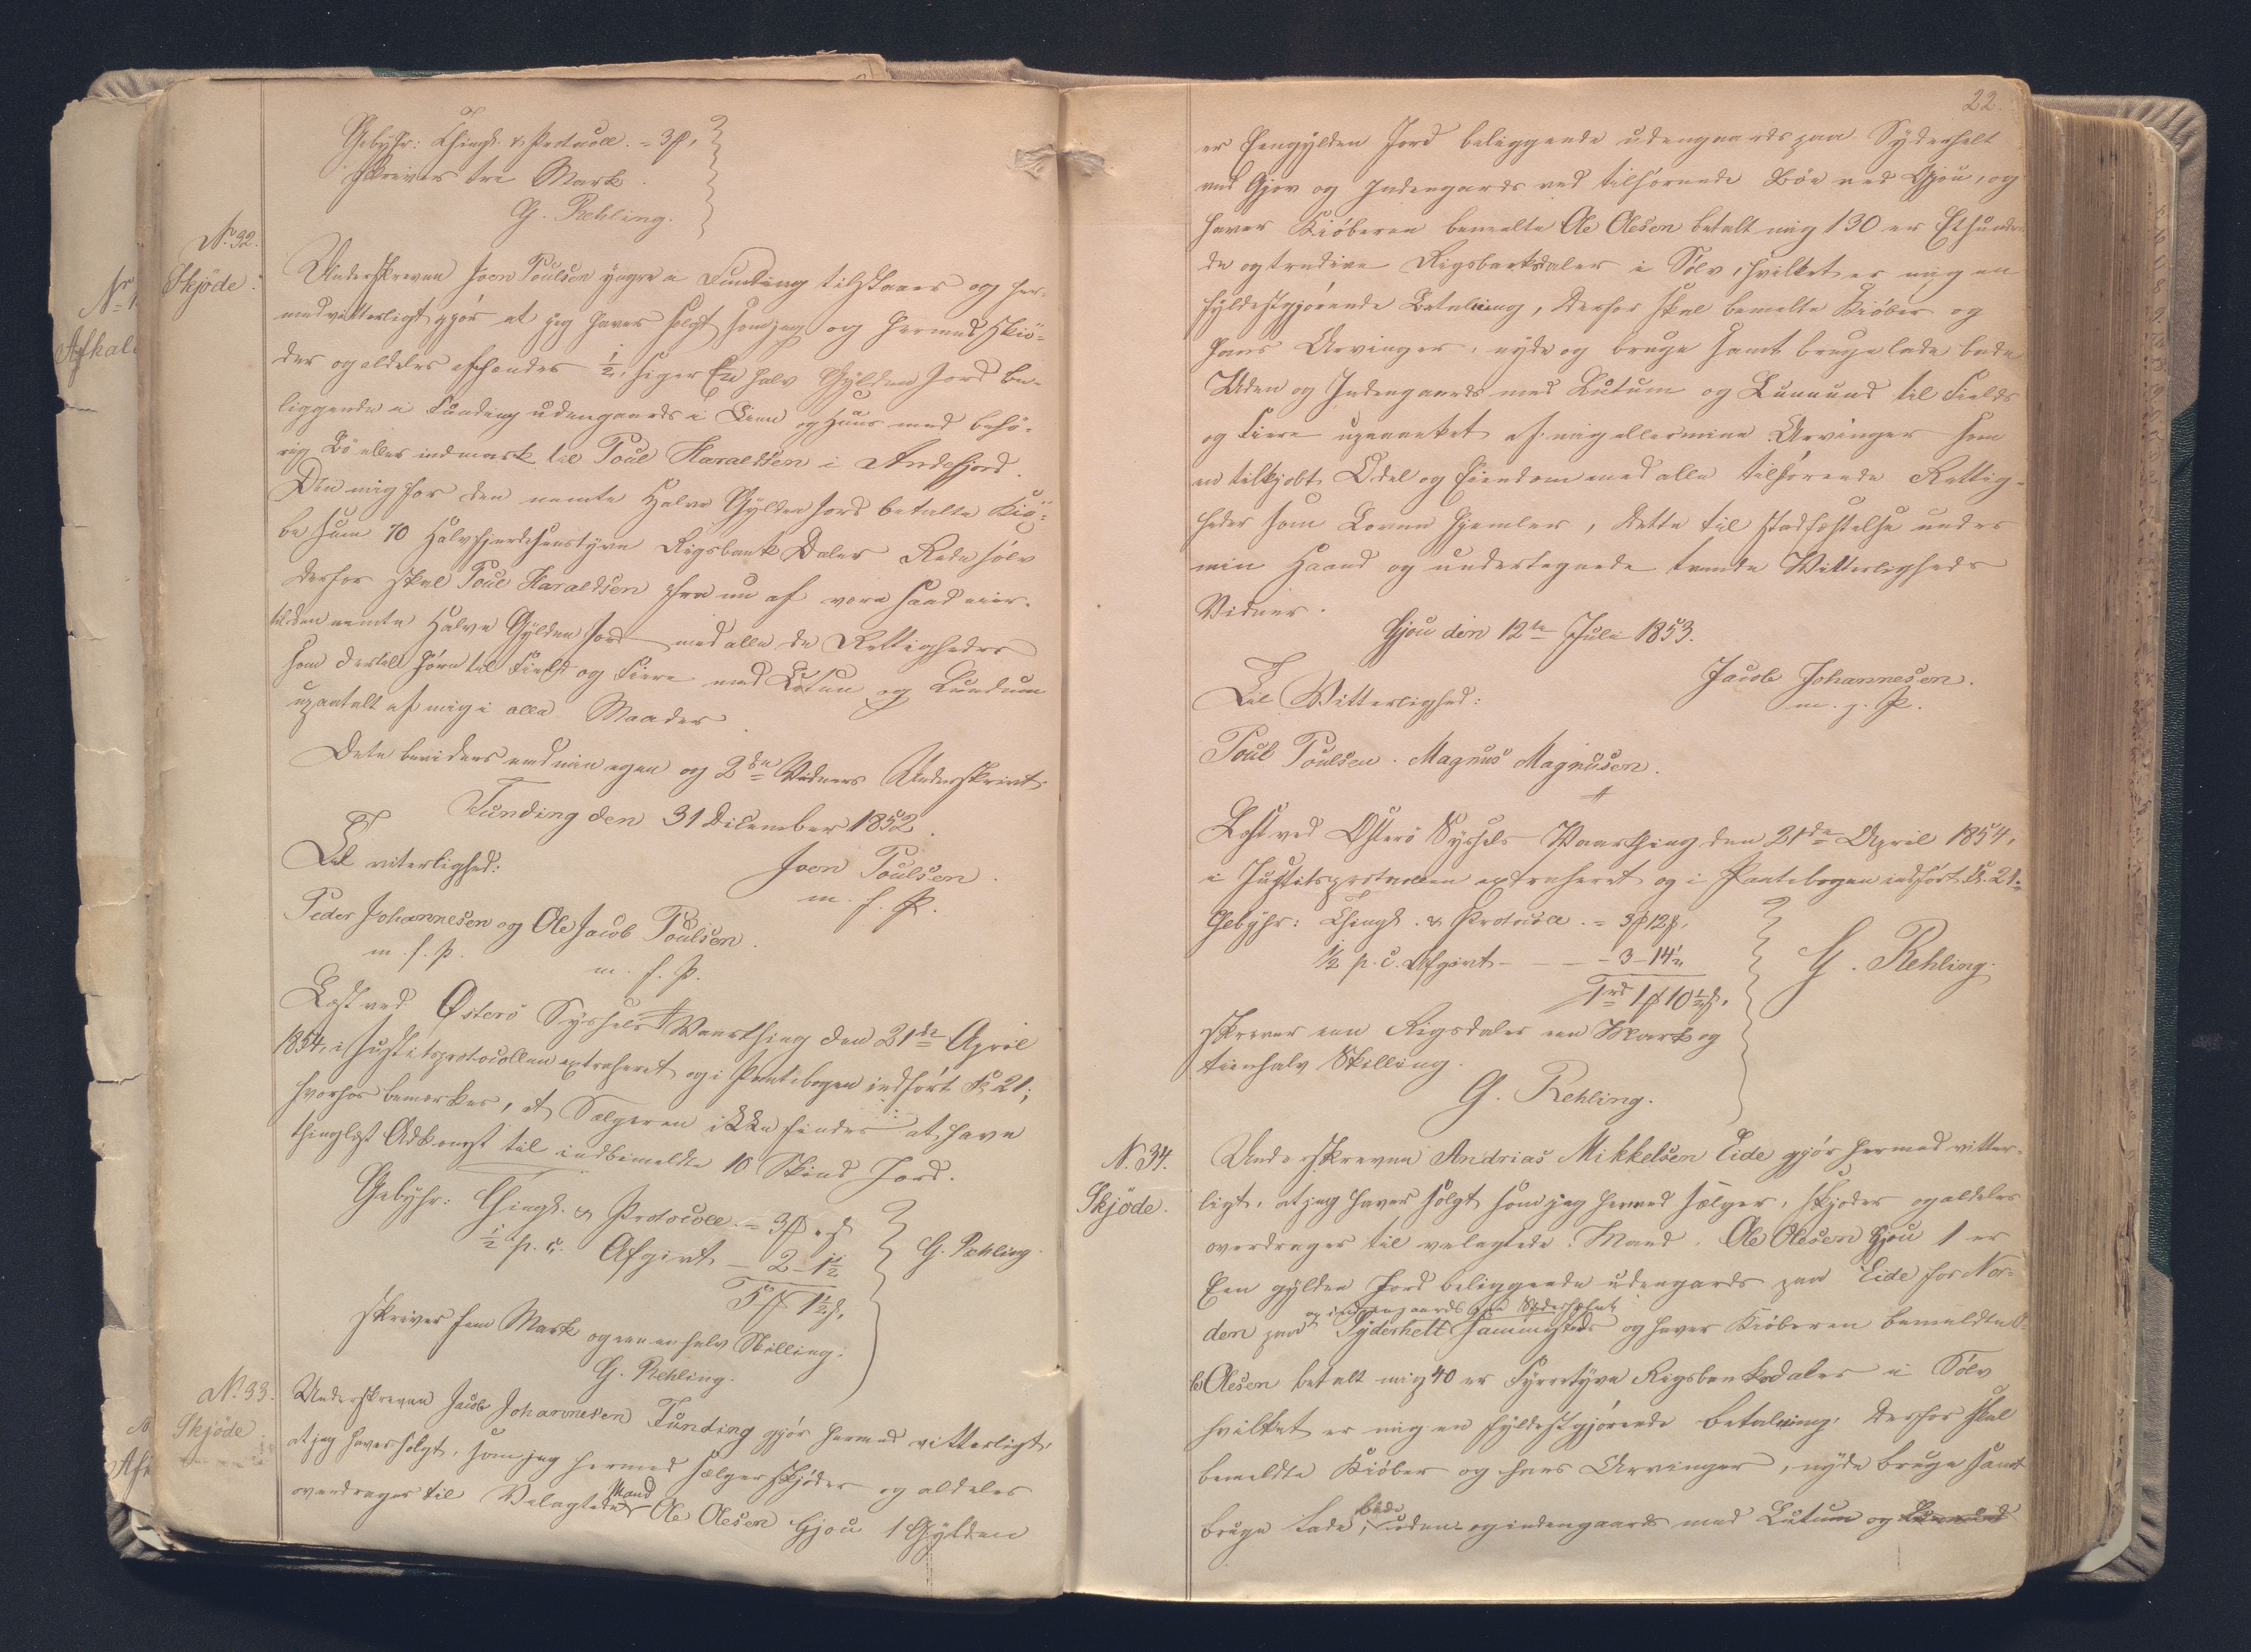 Gebyhr: Thingl. & Protocoll. = 3 ℔,
skriver tre Mark.
G. Rehling.
No. 32.
Skjöde:
Underskrevne Joen Poulsen yngre a Funding tilstaaer og her-
medvitterligt gjör at jeg haver solgt som jeg og hermed Skiö-
der og aldeles afhænder ½, siger En halv Gylden Jord be-
liggende i Funding udengaards i Lien og Huus med behö-
rig Bö eller indmark til Poul Haraldsen i Andefjord.
Den mig for den nemte Halve Gylden Jord betalte Kiö-
be Sum 70 Halvfjerdsenstyve Rigsbank Daler Rede sölv
derfor skal Poul Haraldsen fra nu af være sand eier.
til den nemte Halve Gylden Jord med alle de Rettigheder
som dertil höre til Field og Fiere med Lutum og Lundum
upaatalt af mig i alle Maader
Dete bevidnes med min egen og 2de Vidners Underskrivt.
Funding den 31 Dicember 1852.
Til viterlighed:
Joen Poulsen.
m. f. P.
Peder Johannesen og Ole Jacob Poulsen.
m. f. p.
m. f. P.
Læst ved Österö Syssels Vaarthing den 21de April
1854, i Justitsprotocollen extraheret og i Pantebogen indfört Fo. 21;
hvorhos bemærkes, at Sælgeren ikke findes at have
thinglæst Adkomst til indbemeldte 10 Skind Jord.
Gebyhr: Thingl. & Protocoll. = 3 ℔ " ß
½ p. C. Afgivt – 2 – 1½
5 ℔ 1½ ß,
skriver fem Mark og een en halv Skilling.
G. Rehling.
G. Rehling.
No. 33.
Skjöde
Underskrevne Jacob Johannesen Funding gjör hermed vitterligt,
at jeg haver solgt, som jeg hermed sælger skjöder og aldeles
overdrager til Velagtede Mand Ole Olesen Gjou 1 Gylden
22.
er Eengylden Jord beliggende udengaards paa Syderhelt
ved Gjov og Indengaards ved tilhörende Böe ved Gjou, og
haver Kiöberen bemelte Ole Olesen betalt mig 130 er Ethundre-
de og tredive Rigsbanksdaler i Sölv, hvilket er mig en
fyldestgjörende Betaling, derfor skal bemelte Kiöber og
hans Arvinger, nyde og bruge samt bruge lade bade
Uden og Indengaards med Lutum og Lunnund til Fields
og Fiere upaaanket af mig eller mine Arvinger som
en tilkjobt Odel og Eiendom med alle tilhörende Rettig-
heder som Loven hjemler, dette til stadfæstelse under
min Haand og undertegnede tvende Vitterligheds
Vidner.
Gjou den 12te Juli 1853.
Jacob Johannesen.
m. f. P.
Til Vitterlighed:
Poul Poulsen. Magnus Magnusen.
Læst ved Österö Syssels Vaarthing den 21de April 1854,
i Justitsprotocollen extraheret og i Pantebogen indfört Fo. 21.
Gebyhr: Thingl. & Protocoll. = 3 ℔ 12 ß,
½ p. C. Afgivt – – – 3 – 14½
1 rd 1 ℔ 10½ ß.
G. Rehling.
skriver een Rigsdaler een Mark og
tienhalv Skilling.
G. Rehling.
No. 34.
Skjöde.
Underskrevne Andrias Mikkelsen Eide gjör hermed vitter-
ligt, at jeg haver solgt som jeg hermed sælger, skjöder og aldeles
overdrager til velagtede Mand, Ole Olesen Gjou 1 er
Een gylden Jord beliggende udengards paa Eide for Nor-
og indengaards paa
den paa Syderhelt sammesteds og haver Kiöberen bemeldte O-
le Olesen betalt mig 40 er Fyrretyve Rigsbanksdaler i Sölv
hvilket er mig en fyldestgjörende betaling, derfor skal
bemeldte Kiöber og hans Arvinger, nyde bruge samt
bruge lade, både uden- og indengaards med Lutum og Lunnund